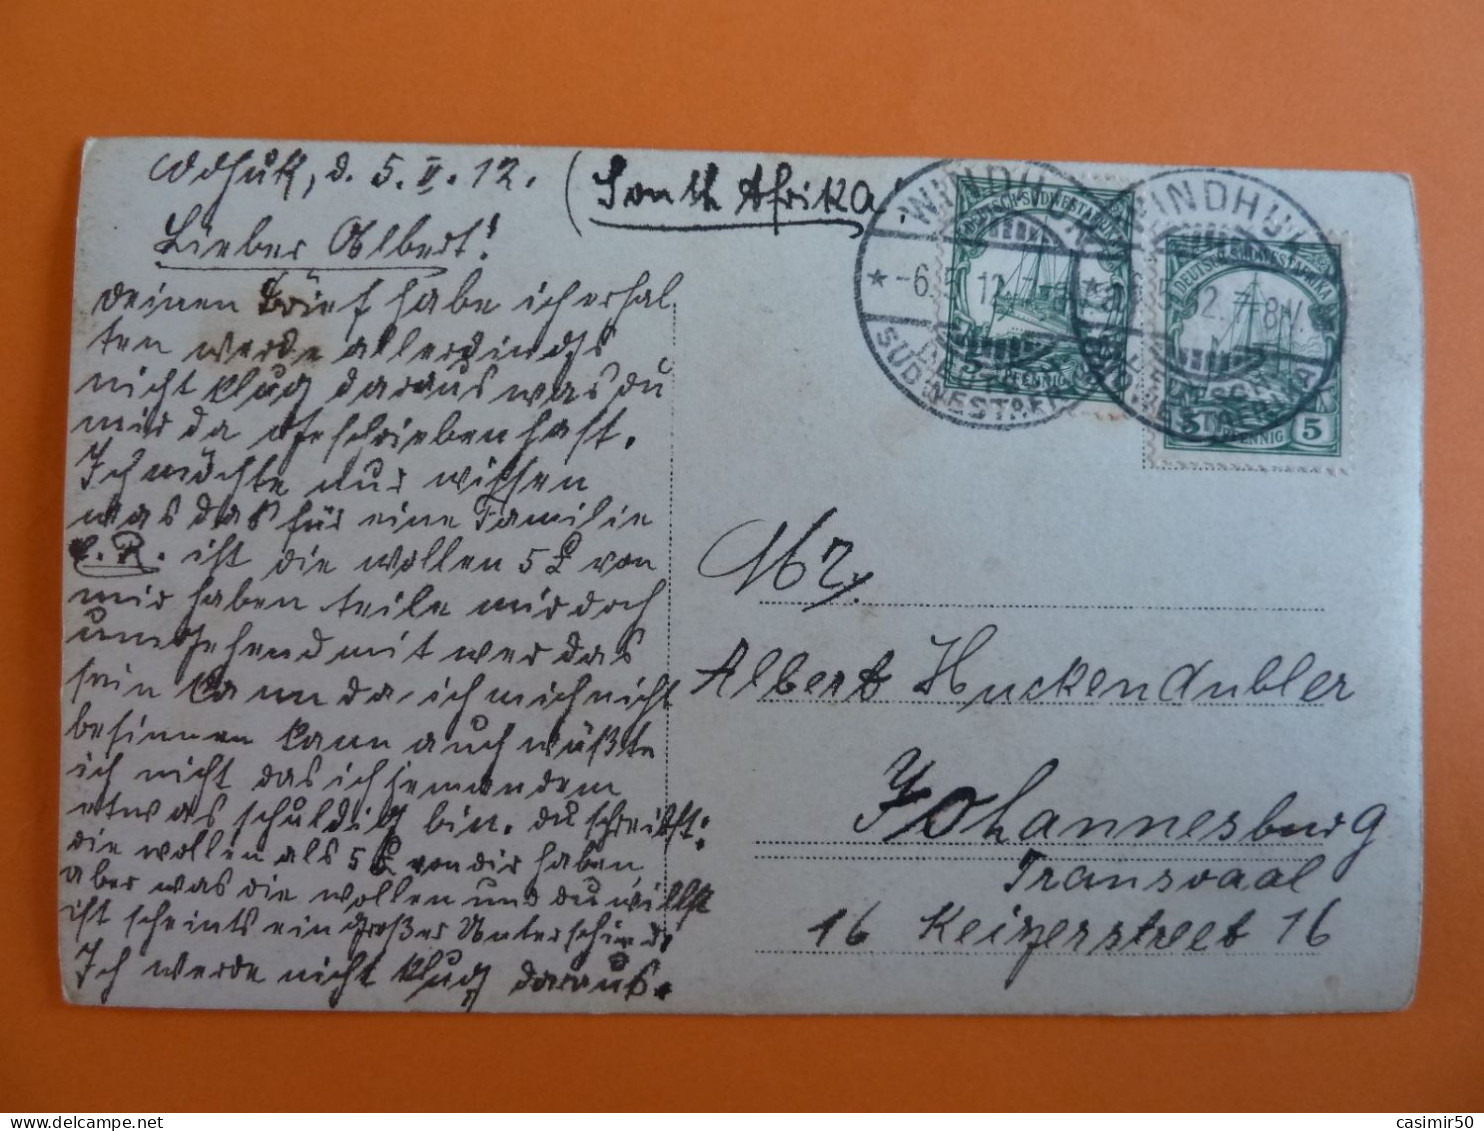 Wdhuk, d. 5. II. 12.
(South Afrika!
Lieber Albert!
deinen Brief habe ich erhal
ten werde allerdings
nicht klug daraus was du
mir da geschrieben hast.
Ich möchte nur wissen
was das für eine Familie
R. ist die wollen 5 £ von
mir haben teile mir doch
umgehend mit wer das
sein kann da ich mich nicht
besinnen kann auch wüßte
ich nicht das ich jemandem
etwas schuldig bin. du schreibst:
die wollen als 5 £ von dir haben,
aber was die wollen und du willst
ist scheints ein großer Unterschied.
Ich werde nicht klug daraus.
WINDHUK
* -6. 12. 7-8
SÜDWESTAFRIKA
DEUTSCH-SÜDWESTAFRIKA
5 PFENNIG
WINDHUK
* 12. 7-8V.
SÜDWESTAFRIKA
DEUTSCH-SÜDWESTAFRIKA
5 PFENNIG 5
Mr.
Albert Huckendubler
Johannesburg
Transvaal
16 Keizerstreet 16
casimir50